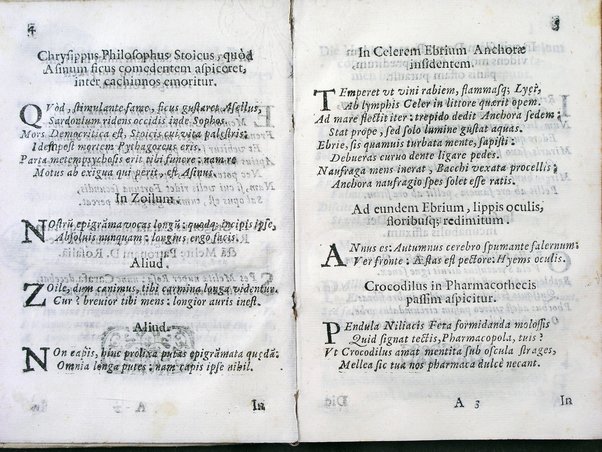 4
Chrysippus Philosophus Stoicus, quòd
Asinum ficus comedentem aspiceret,
inter cachinnos emoritur.
QVòd, stimulante fame, ficus gustaret Asellus,
Sardonium ridens occidis inde Sophos.
Mors Democritica est, Stoicis cui vita palestris:
Id est post mortem Pythagoreus eris.
Parta metempsychosis erit tibi funere: nam re
Motus ab exigua qui perit, est Asinus.
In Zoilum.
NOstrũ epigrãma vocas longũ: quodq; incipis ipse,
Absoluis nunquam: longius ergo facis.
Aliud.
ZOile, dum canimus, tibi carmina longa videntur.
Cur? brevior tibi mens: longior auris inest.
Aliud.
NOn capis, hinc prolixa putas epigrãmata quędã:
Omnia longa putes: nam capis ipse nihil.
A 2
In
5
In Celerem Ebrium Anchoræ
insidentem.
TEmperet ut vini rabiem, flammasq; Lyęi,
Ab lymphis Celer in littore quærit opem.
Ad mare flectit iter: trepido dedit Anchora sedem:
Stat prope, sed solo lumine gustat aquas.
Ebrie, sis quamuis turbata mente, sapisti:
Debueras curuo dente ligare pedes.
Naufraga mens inerat, Bacchi vexata procellis;
Anchora naufragio spes solet esse ratis.
Ad eundem Ebrium, lippis oculis,
floribusq; redimitum.
ANnus es: Autumnus cerebro spumante falernum:
Ver fronte: Æstas est pectore: Hyems oculis.
Crocodilus in Pharmacothecis
passim aspicitur.
PEndula Niliacis Feta formidanda molossis
Quid signat tectis, Pharmacopola, tuis?
Vt Crocodilus amat mentita sub oscula strages,
Mellea sic tua nos pharmaca dulcè necant.
A 3
In